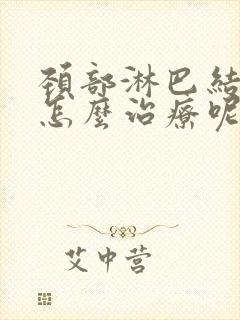 頚部淋巴結
怎麼治療呢
艾中营